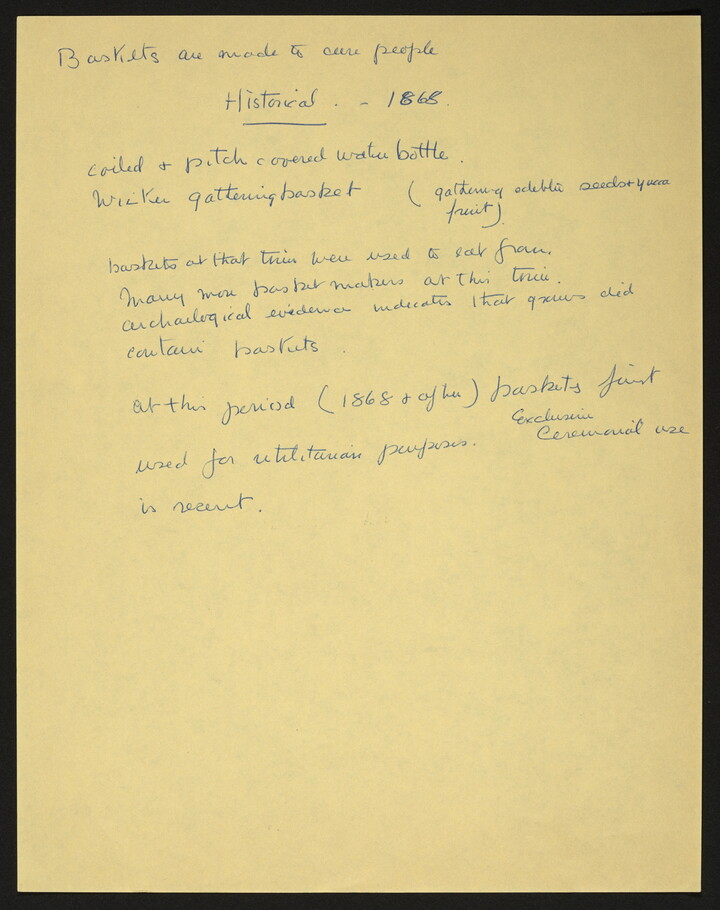 Baskets are made to cure people
Historical. - 1868.
coiled + pitch covered water bottle.
Wicker gathering basket ( gathering edeble seeds + yucca
fruit)
baskets at that time were used to eat from.
Many more basket makers at this time.
archaelogical evidence indicates that graves did
contain baskets.
at this period (1868 + after) baskets first
Exclusive
used for utilitarian purposes. Ceremonial use
is recent.